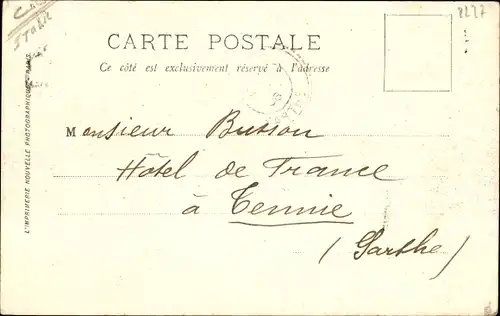 8277
CARTE POSTALE
Ce côté est exclusivement réservé à l'adresse
Monsieur Busson
Hôtel de France
à Tennie
(Sarthe)
L'IMPRIMERIE NOUVELLE PHOTOGRAPHIQUE - PARIS
STARR